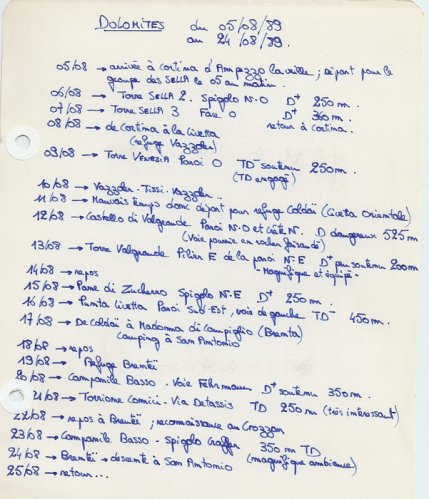 DOLOMITES du 05/08/89
au 24/08/89.
05/08 → arrivée à Cortina d'Ampezzo la veille ; départ pour le
groupe des SELLA le 05 au matin.
06/08 → Torre SELLA 2. Spigolo N-O D⁺ 250 m.
07/08 → Torre SELLA 3 Face O D⁺ 360 m.
retour à Cortina.
08/08 → de Cortina à la Civetta
(refuge Vazzoler)
09/08 → Torre VENEZIA Paroi O TD⁻ soutenu 250 m.
(TD engagé)
10/08 → Vazzoler - Tissi - Vazzoler.
11/08 → Mauvais temps donc départ pour refuge Coldaï (Civetta Orientale)
12/08 → Castello di Valgrande Paroi N-O et crête N. D dangereux 525 m
(Voie pourrie en rocher faisandé)
13/08 → Torre Valgrande Pilier E de la paroi N-E D⁺ peu soutenu 200 m
- Magnifique et équipé -
14/08 → repos
15/08 → Pane di Zucchero Spigolo N-E D⁺ 250 m.
16/08 → Punta Civetta Paroi Sud-Est, voie de gauche TD⁻ 450 m.
17/08 → De Coldaï à Madonna di Campiglio (Brenta)
Camping à San Antonio
18/08 → repos
19/08 → Refuge Brenteï
20/08 → Campanile Basso. Voie Fehrmann D⁺ soutenu 350 m.
21/08 → Torrione Comici - Via Detassis TD 250 m (très intéressant)
22/08 → repos à Brenteï ; reconnaissance au Crozzon
23/08 → Campanile Basso - Spigolo Graffer 350 m TD
(magnifique ambiance)
24/08 → Brenteï → descente à San Antonio
25/08 → retour...